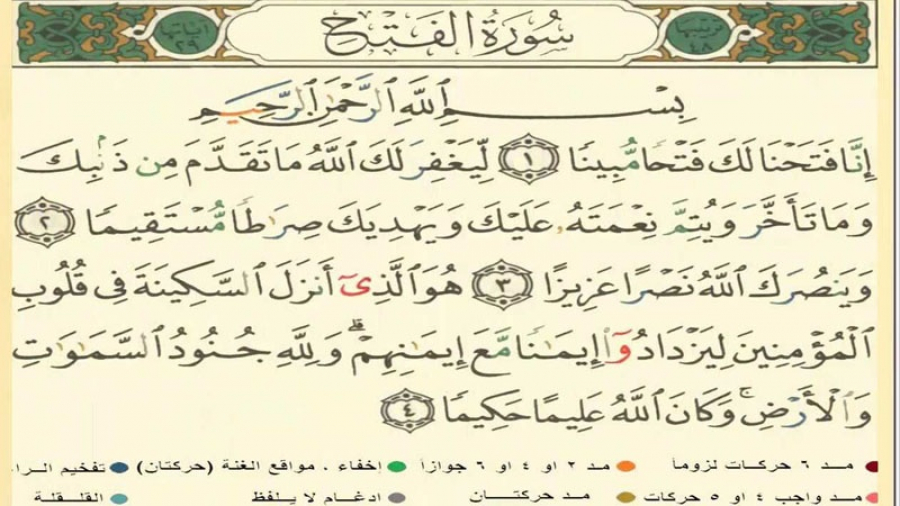 ترتيبها ٤٨ سُورَةُ الفَتْحِ آياتها ٢٩
بِسْمِ اللَّهِ الرَّحْمَٰنِ الرَّحِيمِ
إِنَّا فَتَحْنَا لَكَ فَتْحًا مُّبِينًا ١ لِّيَغْفِرَ لَكَ اللَّهُ مَا تَقَدَّمَ مِن ذَنۢبِكَ
وَمَا تَأَخَّرَ وَيُتِمَّ نِعْمَتَهُۥ عَلَيْكَ وَيَهْدِيَكَ صِرَٰطًا مُّسْتَقِيمًا ٢
وَيَنصُرَكَ اللَّهُ نَصْرًا عَزِيزًا ٣ هُوَ الَّذِىٓ أَنزَلَ السَّكِينَةَ فِى قُلُوبِ
الْمُؤْمِنِينَ لِيَزْدَادُوٓا۟ إِيمَٰنًا مَّعَ إِيمَٰنِهِمْ ۗ وَلِلَّهِ جُنُودُ السَّمَٰوَٰتِ
وَالْأَرْضِ ۚ وَكَانَ اللَّهُ عَلِيمًا حَكِيمًا ٤
مد ٦ حركات لزوماً مد ٢ او ٤ او ٦ جوازاً إخفاء ، مواقع الغنة (حركتان) تفخيم الرا
مد واجب ٤ او ٥ حركات مد حركتان ادغام لا يلفظ القلقلة